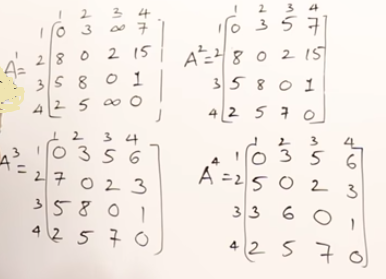 1 2 3 4
1 0 3 ∞ 7
A¹= 2 8 0 2 15
3 5 8 0 1
4 2 5 ∞ 0
1 2 3 4
1 0 3 5 7
A²= 2 8 0 2 15
3 5 8 0 1
4 2 5 7 0
1 2 3 4
A³= 1 0 3 5 6
2 7 0 2 3
3 5 8 0 1
4 2 5 7 0
1 2 3 4
1 0 3 5 6
A⁴= 2 5 0 2 3
3 3 6 0 1
4 2 5 7 0